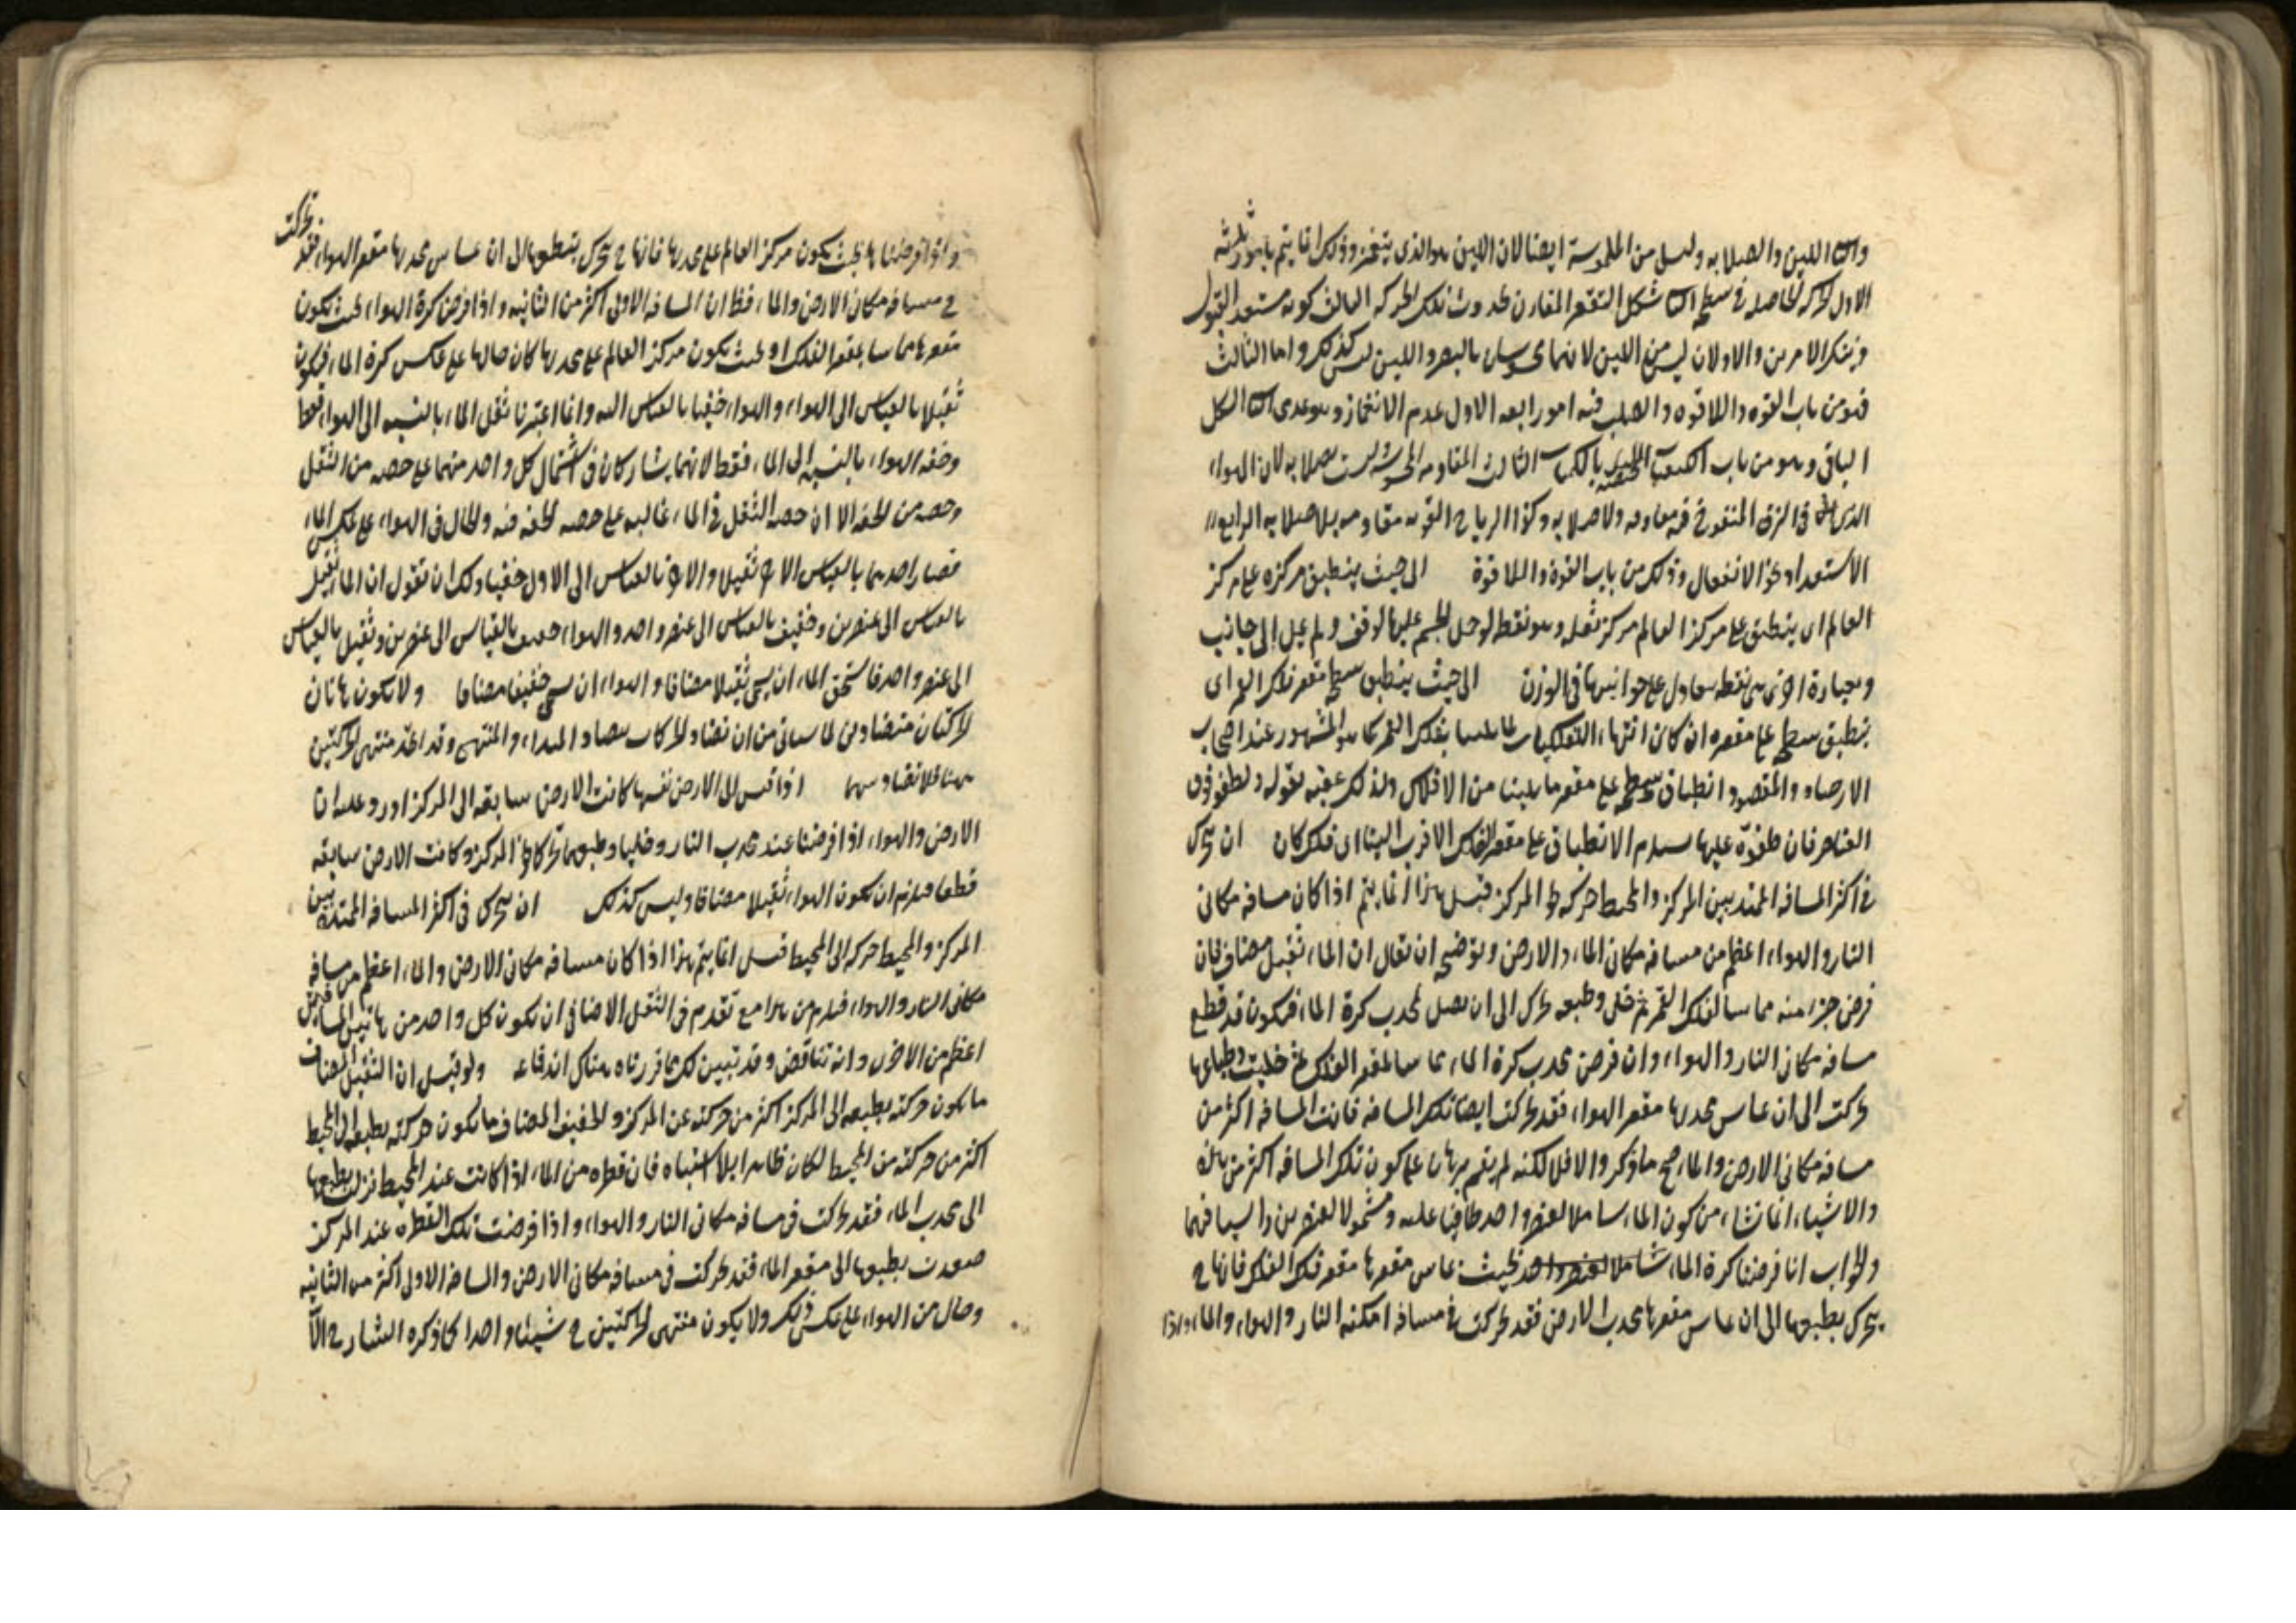 واما اللين والصلابه وليسا من الملموسة ايضا لان اللين هو الذى ينغمز وذلك انما يتم بامور ثلثه
الاول الحركه الحاصله فى سطحه الثانى شكل التقعر المقارن لحدوث تلك الحركه الثالث كونه مستعدا لقبول
ذينك الامرين والاولان ليس من اللين لانهما محسوسان بالبصر واللين ليس كذلك واما الثالث
فهو من باب القوه واللاقوه والصلب فيه امور اربعه الاول عدم الانغماز وهو عدمى الثانى الشكل
الباقى وهو من باب الكيفيات المختصه بالكميات الثالث المقاومه المحسوسه ليست بصلابه لان الهواء
الذى فى الزق المنفوخ فيه مقاومه ولا صلابه وكذا الرياح القويه مقاومه بلا صلابه الرابع
الاستعداد نحو اللاانفعال وذلك من باب القوة واللاقوة الى حيث ينطبق مركزه على مركز
العالم اى ينطبق على مركز العالم مركز ثقله وهو نقطه لو حمل الجسم عليها لوقف ولم يمل الى جانب
وبعبارة اخرى هى نقطه يتعادل على جوانبها فى الوزن الى حيث ينطبق سطحه مقعر فلك القمر اى
ينطبق سطحه على مقعره ان كان انتهاء الفلكيات مما يلينا بفلك القمر كما هو المشهور عند اصحاب
الارصاد والمقصود انطباق سطحه على مقعر ما يلينا من الافلاك ولذلك عقبه بقوله ويطفو فوق
العناصر فان طفوه عليها يستلزم الانطباق على مقعر الفلك الاقرب الينا اى فلك كان ان يتحرك
فى اكثر المسافه الممتد بين المركز والمحيط حركه الى المركز قيل هذا انما يتم اذا كان مسافه مكانى
النار والهواء اعظم من مسافه مكان الماء والارض وتوضيحه ان يقال ان الماء ثقيل مضاف فان
فرض جزء منه مماسا لفلك القمر ثم خلى وطبعه تحرك الى ان يصل لمحدب كرة الماء فيكون قد قطع
مسافه مكان النار والهواء وان فرض محدب كرة الماء مماسا لمقعر الفلك ثم خليت وطباعها
تحركت الى ان يماس محدبها مقعر الهواء فقد تحركت ايضا تلك المسافه فان كانت المسافه اكثر من
مسافه مكانى الارض والماء صح ما ذكر والا فلا لكنه لم يقم برهان على كون تلك المسافه اكثر من هذه
والاشتباه انما نشاء من كون الماء شاملا لعنصر واحد طافيا عليه ومشمولا لعنصرين راسبا فيهما
والجواب انا فرضنا كرة الماء شاملا لعنصر واحد بحيث يماس مقعرها مقعر فلك الفلك فانها ح
يتحرك بطبعها الى ان يماس مقعرها محدب الارض فقد تحركت فى مسافه امكنه النار والهواء والماء واذا
واذا فرضناها بحيث يكون مركز العالم على محدبها فانها ح يتحرك بطبعها الى ان يماس محدبها مقعر الهواء فقد تحركت
فى مسافه مكان الارض والماء فظ ان المسافه الاولى اكثر من الثانيه واذا فرض كرة الهواء بحيث يكون
مقعرها مماسا بمقعر الفلك او بحيث يكون مركز العالم على محدبها كان حالها على عكس كرة الماء فيكون
ثقيلا بالقياس الى الهواء والهواء خفيفا بالقياس اليه وانما اعتبرنا ثقل الماء بالنسبه الى الهواء فقط
وخفه الهواء بالنسبه الى الماء فقط لانهما يشاركان فى اشتمال كل واحد منهما على حصه من الثقل
وحصه من الخفه الا ان حصه الثقل فى الماء غالبه على حصه الخفه فيه والحال فى الهواء على عكس الماء
فصار احدهما بالقياس الى الاخر ثقيلا والاخر بالقياس الى الاول خفيفا ولك ان تقول ان الماء ثقيل
بالقياس الى عنصرين وخفيف بالقياس الى عنصر واحد والهواء خفيف بالقياس الى عنصرين وثقيل بالقياس
الى عنصر واحد فاستحق الماء ان يسمى ثقيلا مضافا والهواء ان يسمى خفيفا مضافا ولا يكون هاتان
الحركتان متضادتين لما سياتى من ان تضاد الحركات بتضاد المبداء والمنتهى وقد اتحد منتهى الحركتين
ههنا فلا تضاد بينهما اذا قيس الى الارض نفسها كانت الارض سابقه الى المركز اورد عليه ان
الارض والهواء اذا فرضنا عند محدب النار وخليا وطبعهما تحركا نحو المركز وكانت الارض سابقه
قطعا فيلزم ان يكون الهواء ثقيلا مضافا وليس كذلك ان يتحرك فى اكثر المسافه الممتدة بين
المركز والمحيط حركه الى المحيط قيل انما يتم هذا اذا كان مسافه مكان الارض والماء اعظم من مسافه
مكانى النار والهواء فيلزم من هذا مع ما تقدم فى الثقل الاضافى ان يكون كل واحد من هاتين المسافتين
اعظم من الاخرى وانه تناقض وقد تبين لك بما قررناه هناك اندفاعه ولو قيل ان الثقيل المضاف
ما يكون حركته بطبعه الى المركز اكثر من حركته عن المركز والخفيف المضاف ما يكون حركته بطبعه الى المحيط
اكثر من حركته من المحيط لكان ظاهرا بلا اشتباه فان قطره من الماء اذا كانت عند المحيط نزلت بطبعها
الى محدب الماء فقد تحركت فى مسافه مكان النار والهواء واذا فرضت تلك القطره عند المركز
صعدت بطبعها الى مقعر الماء فقد تحركت فى مسافه مكان الارض والمسافه الاولى اكثر من الثانيه
وحال من الهواء على عكس ذلك ولا يكون منتهى الحركتين ح شيئا واحدا كما ذكره الشارح الا